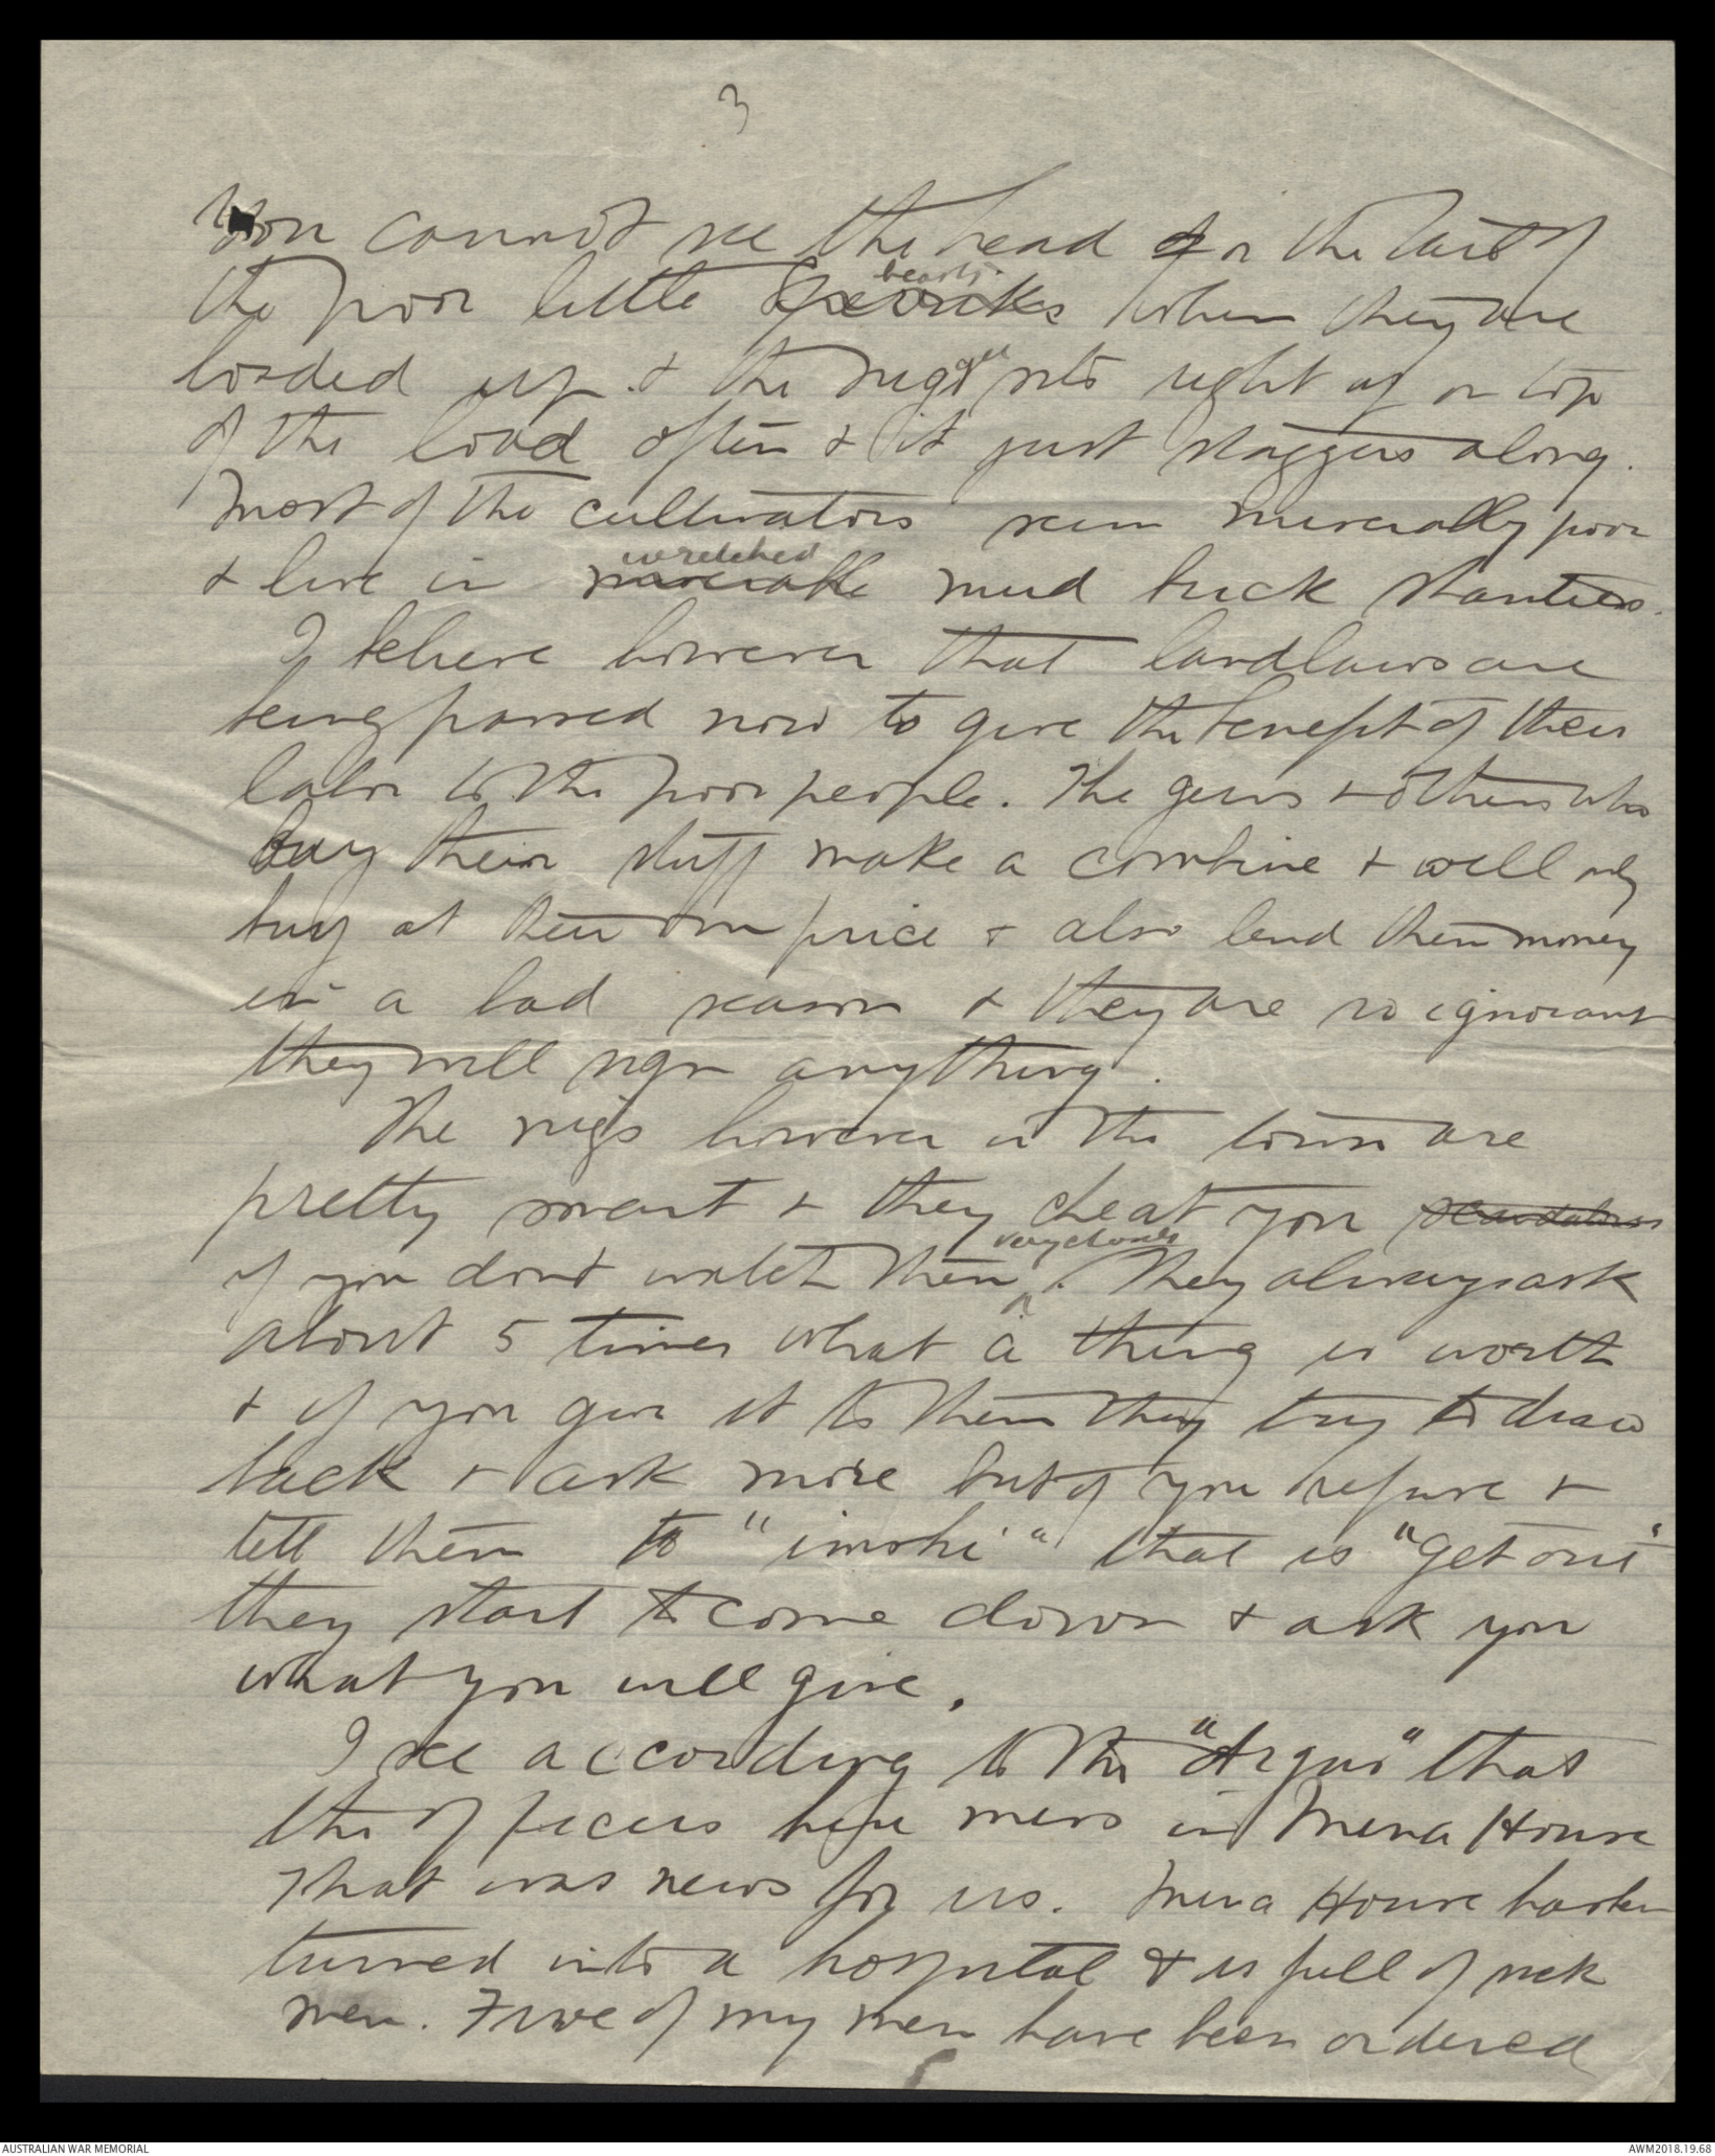 3
You cannot see the head or the tail of
the poor little beasts when they are
loaded up & the nigger sits right up on top
of the load often & it just staggers along.
Most of the cultivators seem miserably poor
& live in miserable wretched mud brick shanties.
I believe however that landlaws are
being passed now to give the benefit of their
labor to the poor people. The gews & others who
buy their stuff make a combine & will only
buy at their own price & also lend them money
in a bad season & they are so ignorant
they will sign anything.
The nigs however in the town are
pretty smart & they cheat you scandalous
if you dont watch them very closely. They always ask
about 5 times what a thing is worth
& if you give it to them they try to draw
back & ask more but if you refuse &
tell them to "imshi" that is "get out"
they start to come down & ask you
what you will give.
I see according to the "Argus" that
the officers here mess in Mena House
That was news for us. Mena House has been
turned into a hospital & is full of sick
men. Five of my men have been ordered
AUSTRALIAN WAR MEMORIAL
AWM2018.19.68